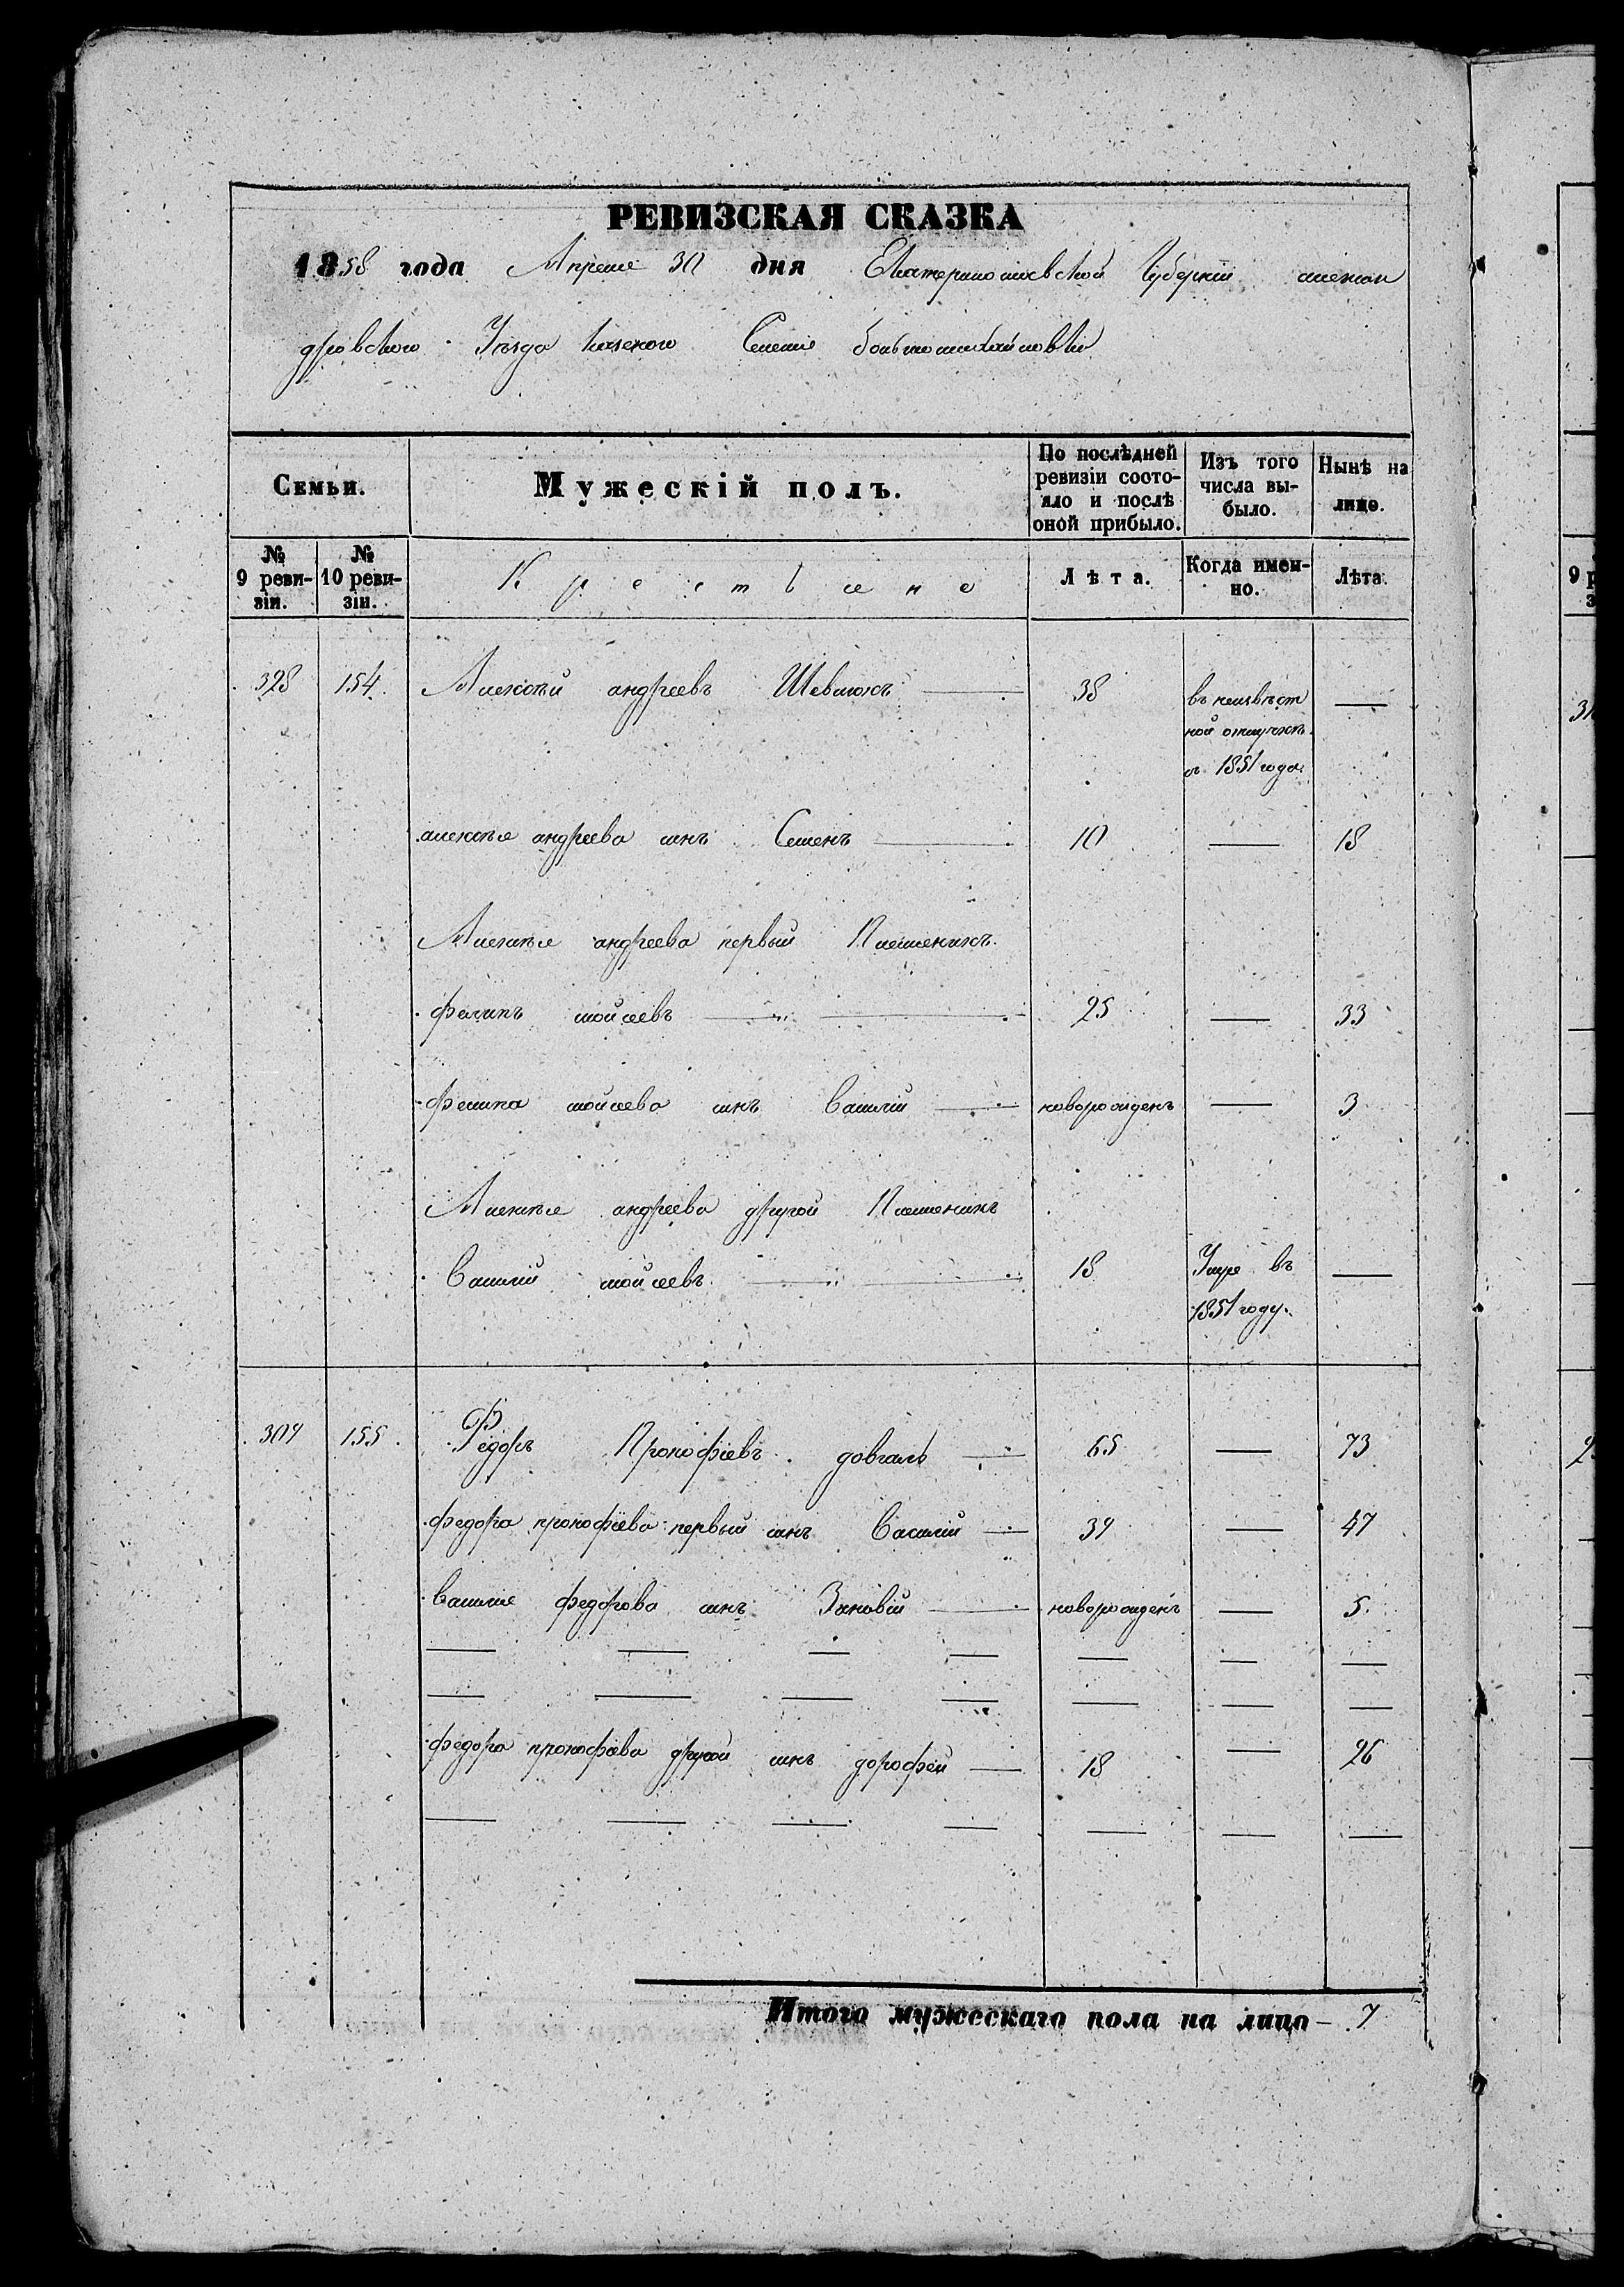 РЕВИЗСКАЯ СКАЗКА
1858 года Апреля 30 дня Екатеринославской Губернии алексан
дровского Уезда Казеного Селенія большомихайловки
Семьи. Мужескій полъ. По послѣдней ревизіи состояло и послѣ оной прибыло. Изъ того числа выбыло. Нынѣ на лицо.
№ 9 ревизіи. № 10 ревизіи. Крестьяне Лѣта. Когда именно. Лѣта.
328 154. Алексѣй андреевъ 38 въ неизвѣст —
ной отлучкѣ
съ 1851 года
алексѣя андреева синъ Семенъ 10 — 18
Алексѣя андреева первый Племеникъ
филипъ мойсеевъ 25 — 33
филипа мойсеева синъ Василий новорожденъ — 3
Алексѣя андреева другой Племеникъ
Василий мойсеевъ 18 Умре въ —
1851 году.
309 155. Федоръ Прокофіевъ довгаль 65 — 73
федора прокофіева первый синъ Василий 39 — 47
василия федорова синъ Зиновій новорожденъ — 5
федора прокофіева другой синъ дорофей 18 — 26
Итого мужескаго пола на лицо — 7
9